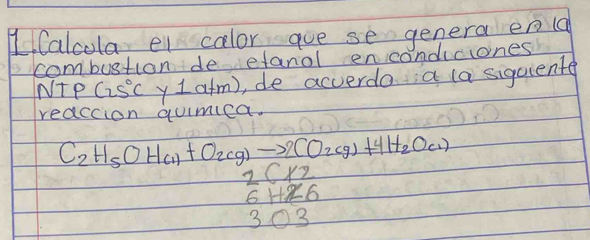 1. Calcula el calor que se genera en la
combustian de etanol en condiciones
NTP (25°C y 1 atm), de acuerdo a la siguiente
reaccion quimica.
C2H5OH(l) + O2(g) → 2CO2(g) + 4H2O(l)
2 C x2
6 H 6
3 O 3